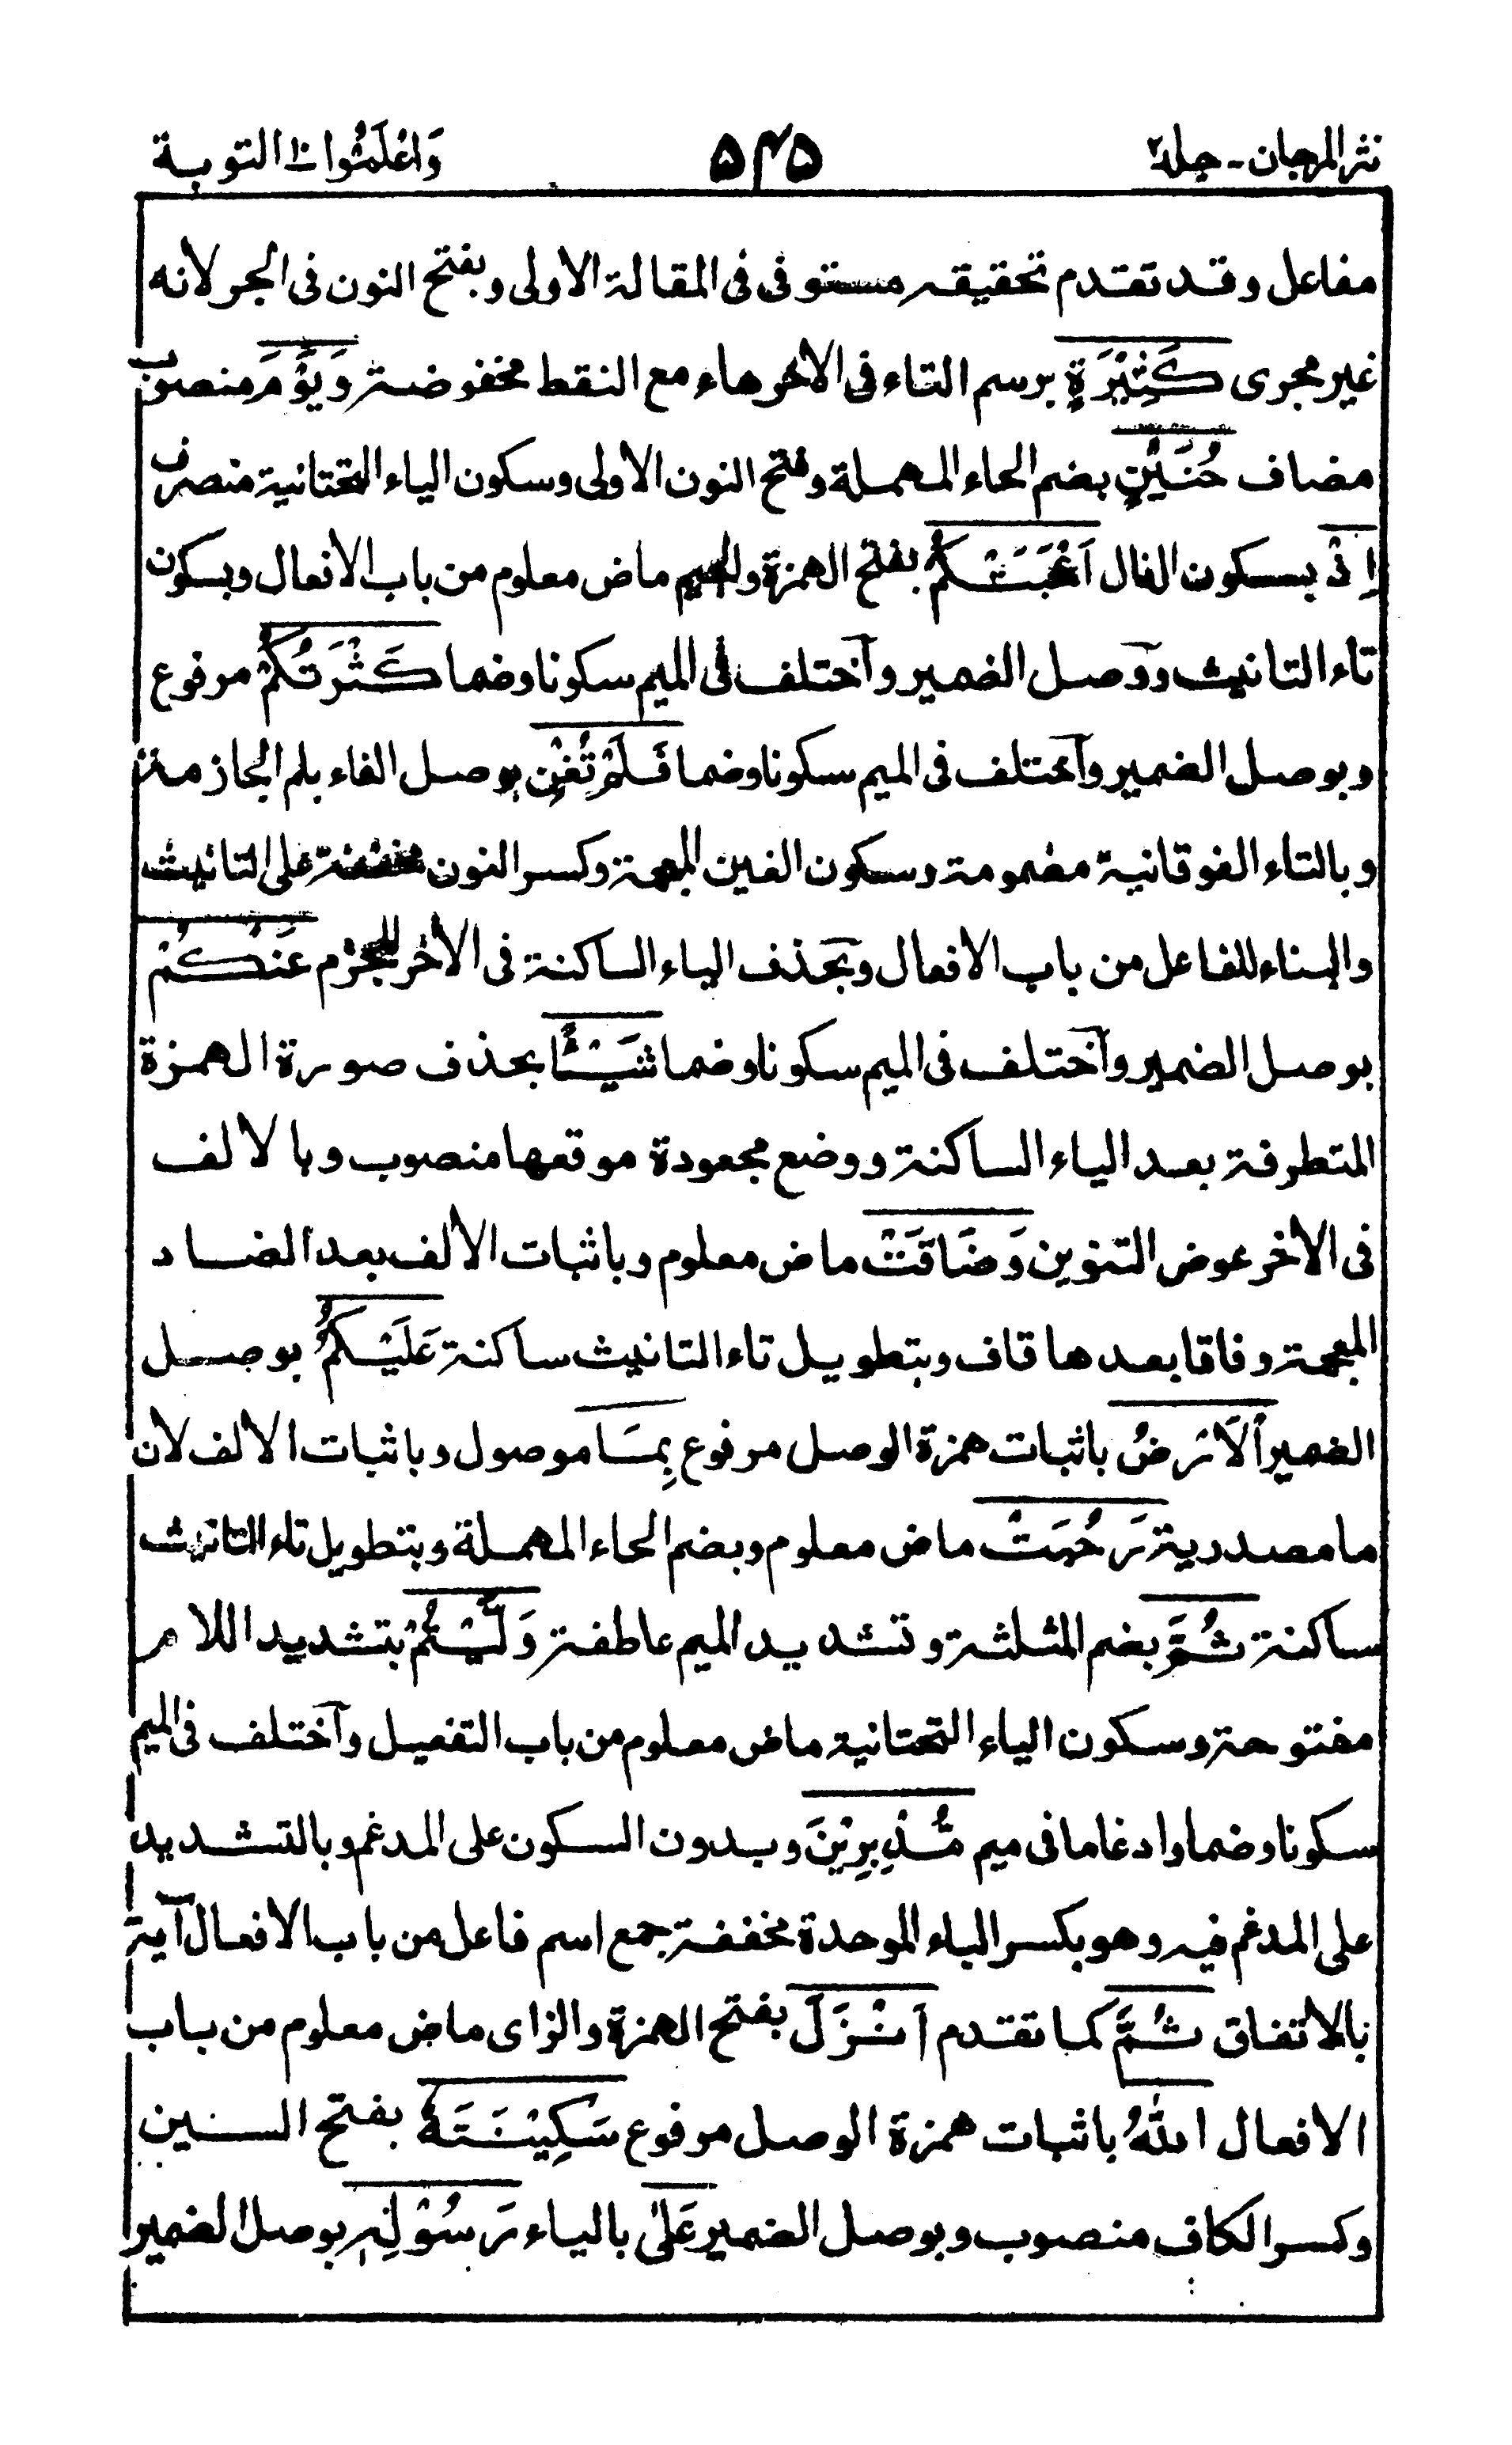 نثر المرجان - جلد ٢ ٥٤٥ وَاعْلَمُوا ١٠ التوبة
مفاعل وقد تقدم تحقيقه مستوفى فى المقالة الاولى وبفتح النون فى الجر لانه
غير مجرى كَثِيْرَةٍ برسم التاء فى الاٰخر هاء مع النقط مخفوضة وَيَوْمَ منصوب
مضاف حُنَيْنٍ بضم الحاء المهملة وفتح النون الاولى وسكون الياء التحتانية منصرف
اِذْ بسكون الذال اَعْجَبَتْكُمْ بفتح الهمزة والجيم ماض معلوم من باب الافعال وبسكون
تاء التانيث ووصل الضمير وآختلف فى الميم سكونا وضما كَثْرَتُكُمْ مرفوع
وبوصل الضمير وآختلف فى الميم سكونا وضما فَلَمْ تُغْنِ بوصل الفاء بلم الجازمة
وبالتاء الفوقانية مضمومة وسكون الغين المعجمة وكسر النون مخففة على التانيث
والبناء للفاعل من باب الافعال وبحذف الياء الساكنة فى الاٰخر للجزم عَنْكُمْ
بوصل الضمير وآختلف فى الميم سكونا وضما شَيْـًٔا بحذف صورة الهمزة
المتطرفة بعد الياء الساكنة ووضع مجعودة موقعها منصوب وبالالف
فى الاٰخر عوض التنوين وَضَاقَتْ ماض معلوم وباثبات الالف بعد الضاد
المعجمة وفاقا بعدها قاف وبتطويل تاء التانيث ساكنة عَلَيْكُمُ بوصل
الضمير الْاَرْضُ باثبات همزة الوصل مرفوع بِمَا موصول وباثبات الالف لان
ما مصدرية رَحُبَتْ ماض معلوم وبضم الحاء المهملة وبتطويل تاء التانيث
ساكنة ثُمَّ بضم المثلثة وتشديد الميم عاطفة وَلَّيْتُمْ بتشديد اللام
مفتوحة وسكون الياء التحتانية ماض معلوم من باب التفعيل وآختلف فى الميم
سكونا وضما وادغاما فى ميم مُّدْبِرِيْنَ وبدون السكون على المدغم وبالتشديد
على المدغم فيه وهو بكسر الباء الموحدة مخففة جمع اسم فاعل من باب الافعال آية
بالاتفاق ثُمَّ كما تقدم اَنْزَلَ بفتح الهمزة والزاى ماض معلوم من باب
الافعال اللّٰهُ باثبات همزة الوصل مرفوع سَكِيْنَتَهٗ بفتح السين
وكسر الكاف منصوب وبوصل الضمير عَلٰى بالياء رَسُوْلِهٖ بوصل الضمير